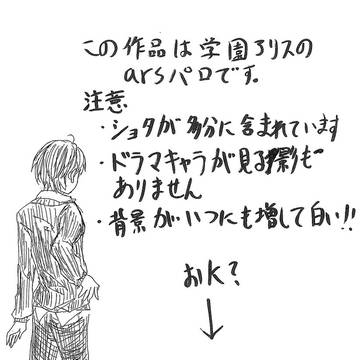 この作品は学園アリスの
arsパロです。
注意
・ショタが多分に含まれています
・ドラマキャラが見る影も
ありません
・背景がいつにも増して白い!!
おK?
↓